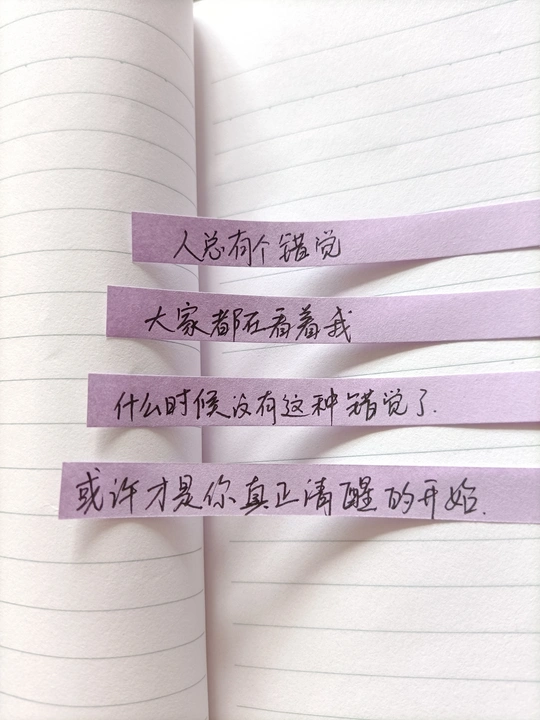 人总有个错觉
大家都在看着我
什么时候没有这种错觉了.
或许才是你真正清醒的开始.